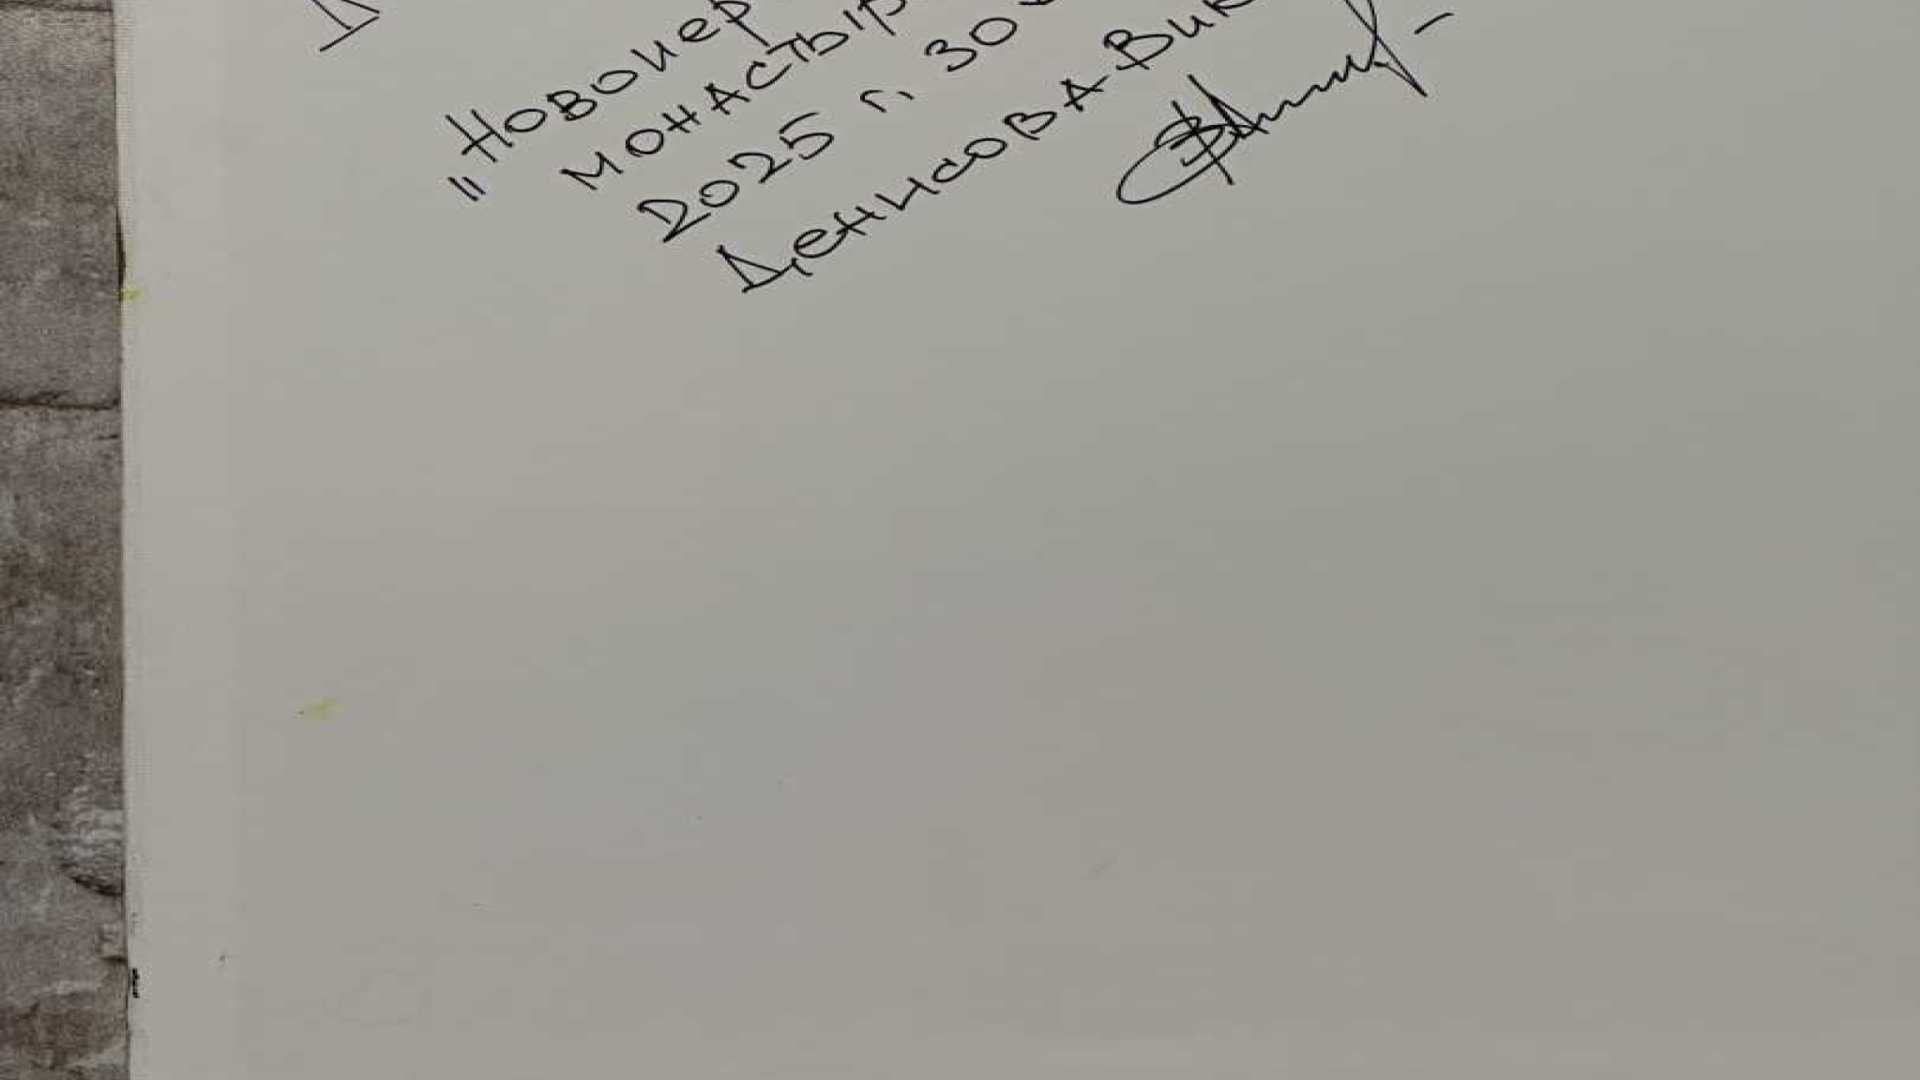 „Новоиер
монастыр
2025 г. 30
Денисова Вик